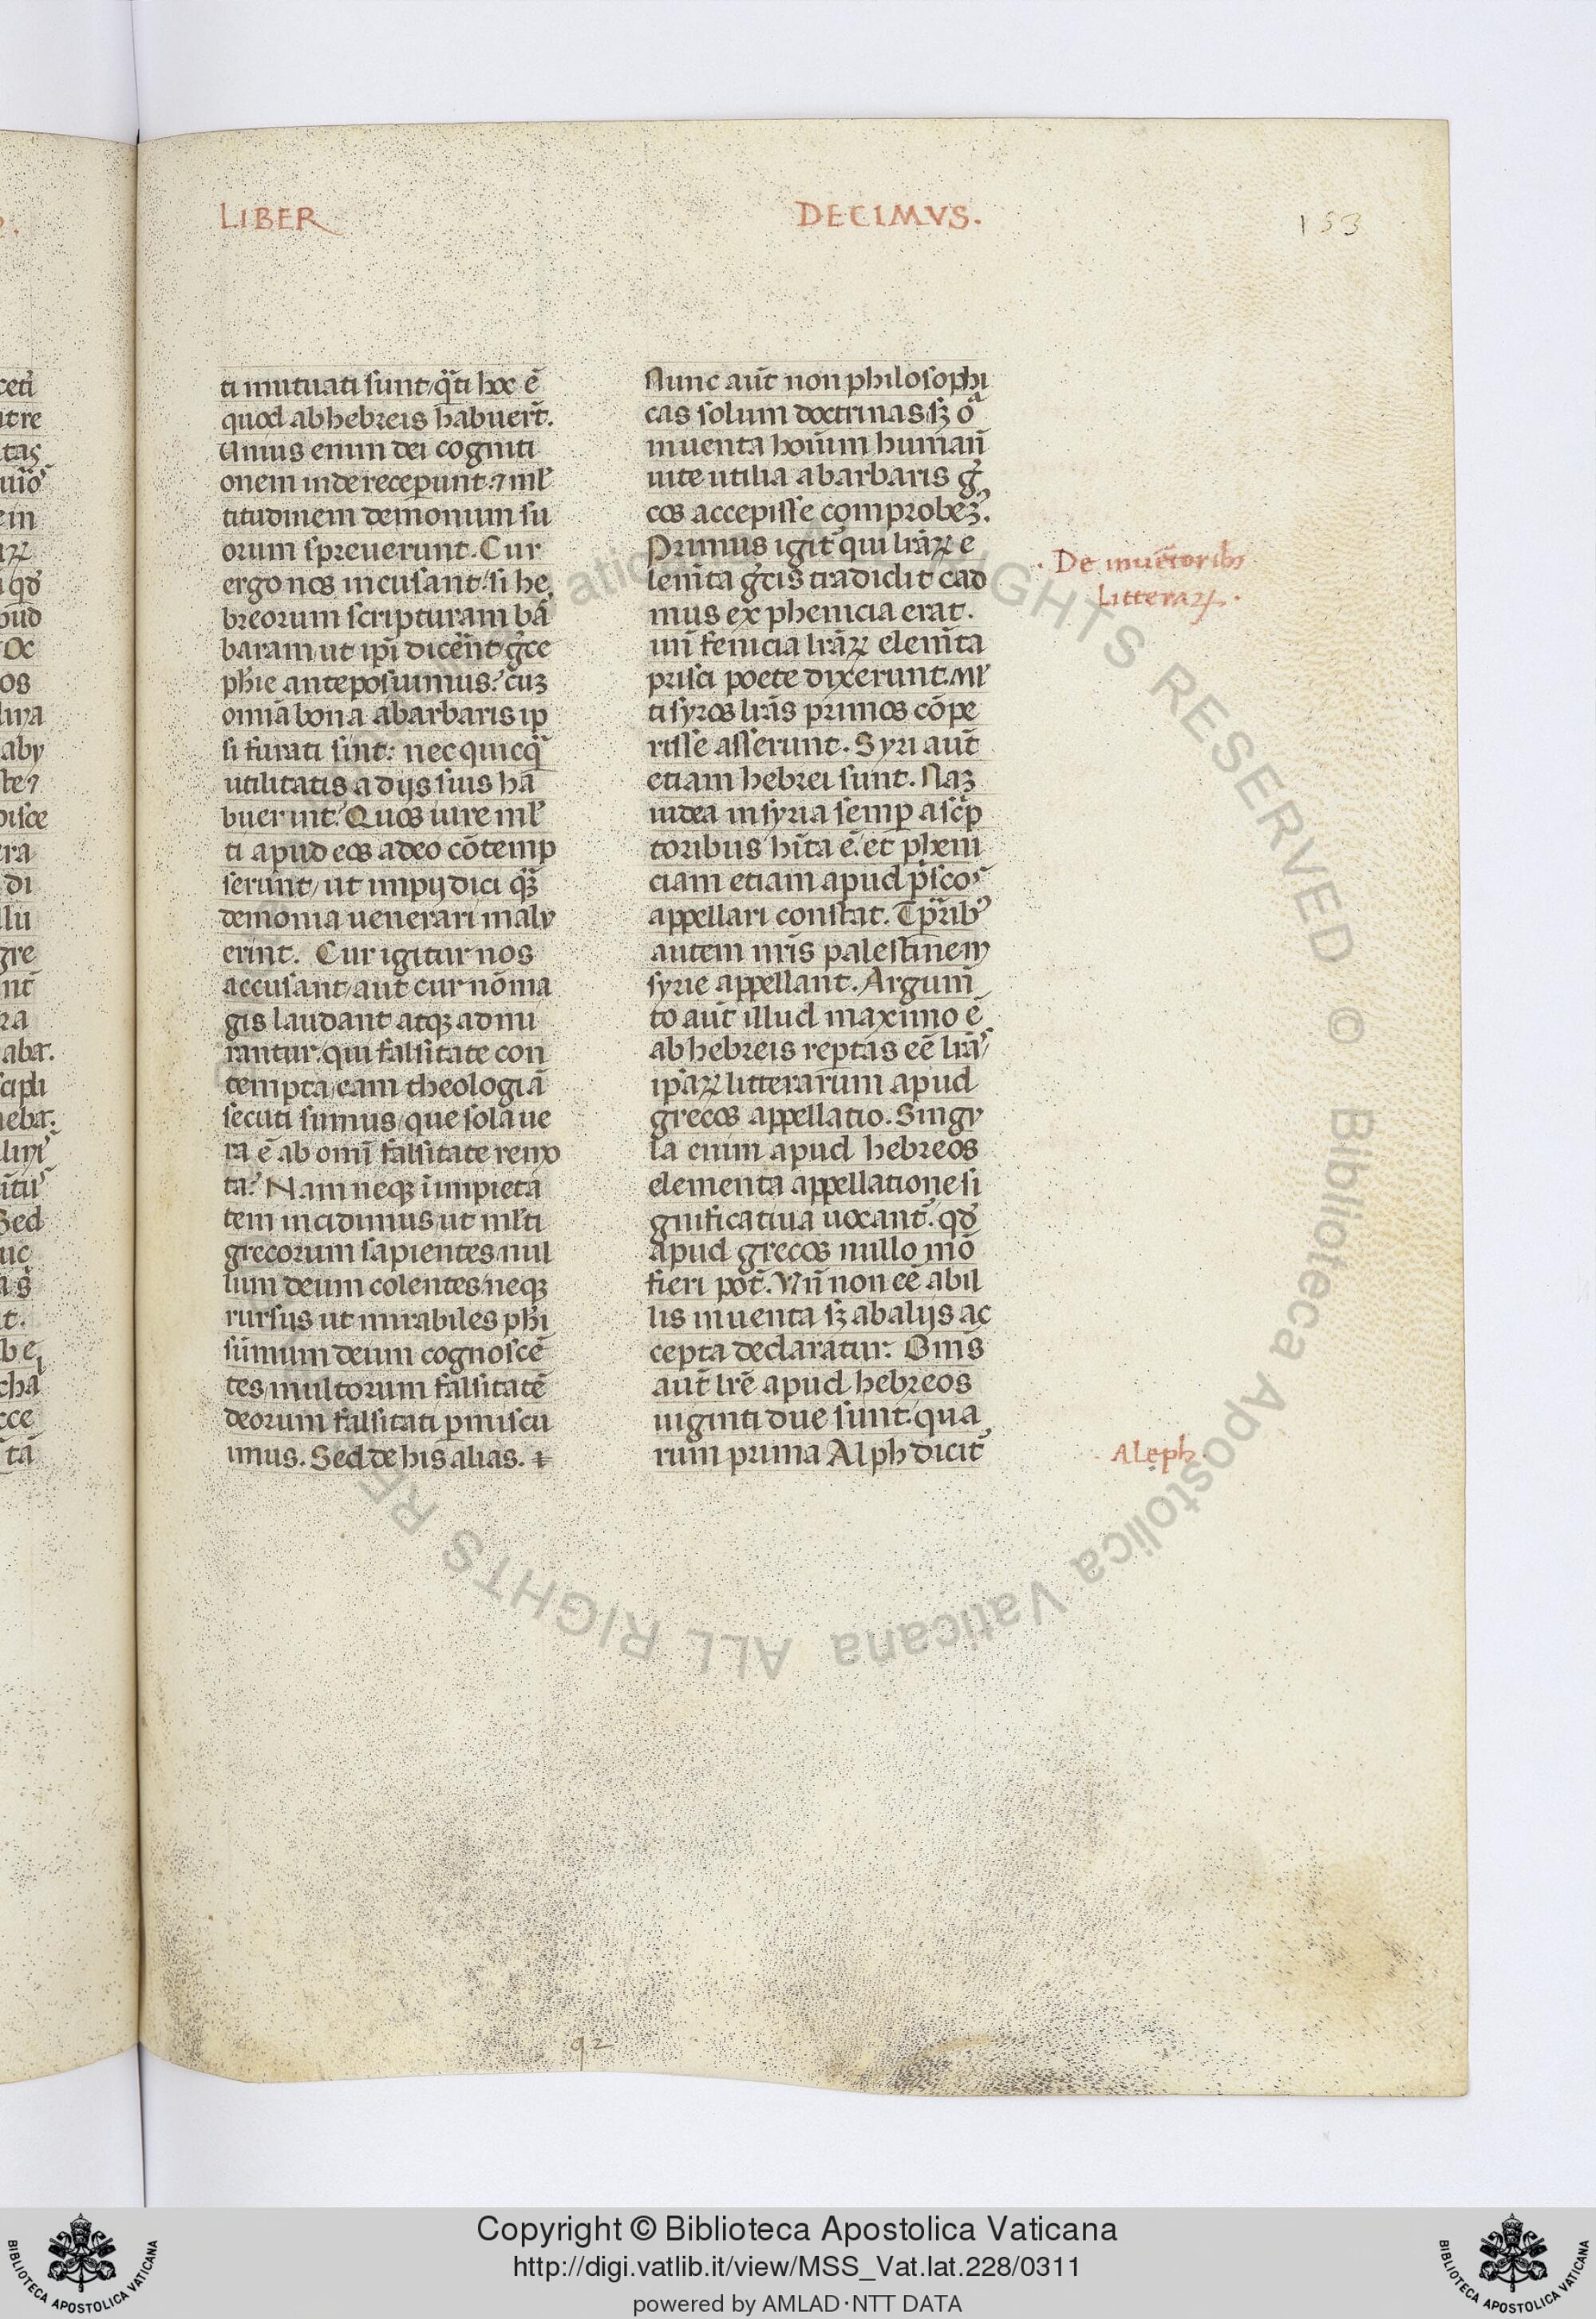 LIBER DECIMVS.
153
ti mutuati sunt/ q̃ti hoc ẽ
quod ab hebreis habuer̃t.
Anius enim dei cogniti
onem inde receperunt: ⁊ ml̃
titudinem demonum su
orum spreuerunt. Cur
ergo nos incusant/ si he
breorum scripturam bã
baram ut ip̃i dicẽnt/ gr̃ce
ph̃ie anteposuimus? cuȝ
omñia bona a barbaris ip
si furati sint: nec quicq̃
utilitatis a dijs suis ha
buerint? Quos iure ml̃
ti apud eos adeo cõtemp
serunt/ ut impij dici q̃ȝ
demonia uenerari malu
erint. Cur igitur nos
accusant/ aut cur nõ ma
gis laudant atqȝ admi
rantur, qui falsitate con
tempta/ eam theologiã
secuti sumus/ que sola ue
ra ẽ ab omĩ falsitate remo
ta? Nam neqȝ ĩ impieta
tem incidimus/ ut ml̃ti
grecorum sapientes/ nul
lum deum colentes/ neqȝ
rursus ut mirabiles ph̃i
summum deum cognoscẽ
tes multorum falsitatẽ
deorum falsitati p̲miscu
imus. Sed de his alias.
Nunc aut̃ non philosophi
cas solum doctrinas sȝ oĩa
inuenta hoĩum humañ
uite utilia a barbaris gr̃
cos accepisse comprobeȝ.
Primus igit̃ qui lr̃aꝝ e
lem̃ta gr̃cis tradidit cad
mus ex phenicia erat.
uñ fenicia lr̃aꝝ elem̃ta
prisci poete dixerunt. Ml̃
ti syros lr̃as primos cõpe
risse asserunt. Syri aut̃
etiam hebrei sunt. Naȝ
iudea in syria semp̲ a sc̃p
toribus hĩta ẽ. et pheni
ciam etiam apud p̃scos
appellari constat. Tp̃rib⁹
autem nr̃is palestinem
syrie appellant. Argum̃
to aut̃ illud maximo ẽ
ab hebreis rep̲tas eẽ lr̃as/
ip̃aꝝ litterarum apud
grecos appellatio. Singu
la enim apud hebreos
elementa appellatione si
gnificatiua uocant̃. qd̃
apud grecos nullo mõ
fieri pot̃. Vñ non eẽ ab il
lis inuenta sȝ ab alijs ac
cepta declaratur. Om̃s
aut̃ lr̃e apud hebreos
uiginti due sunt: qua
rum prima Alph dicit̃
. De inuẽtoribs
Litteraꝝ.
Aleph.
92
Copyright © Biblioteca Apostolica Vaticana
http://digi.vatlib.it/view/MSS_Vat.lat.228/0311
powered by AMLAD·NTT DATA